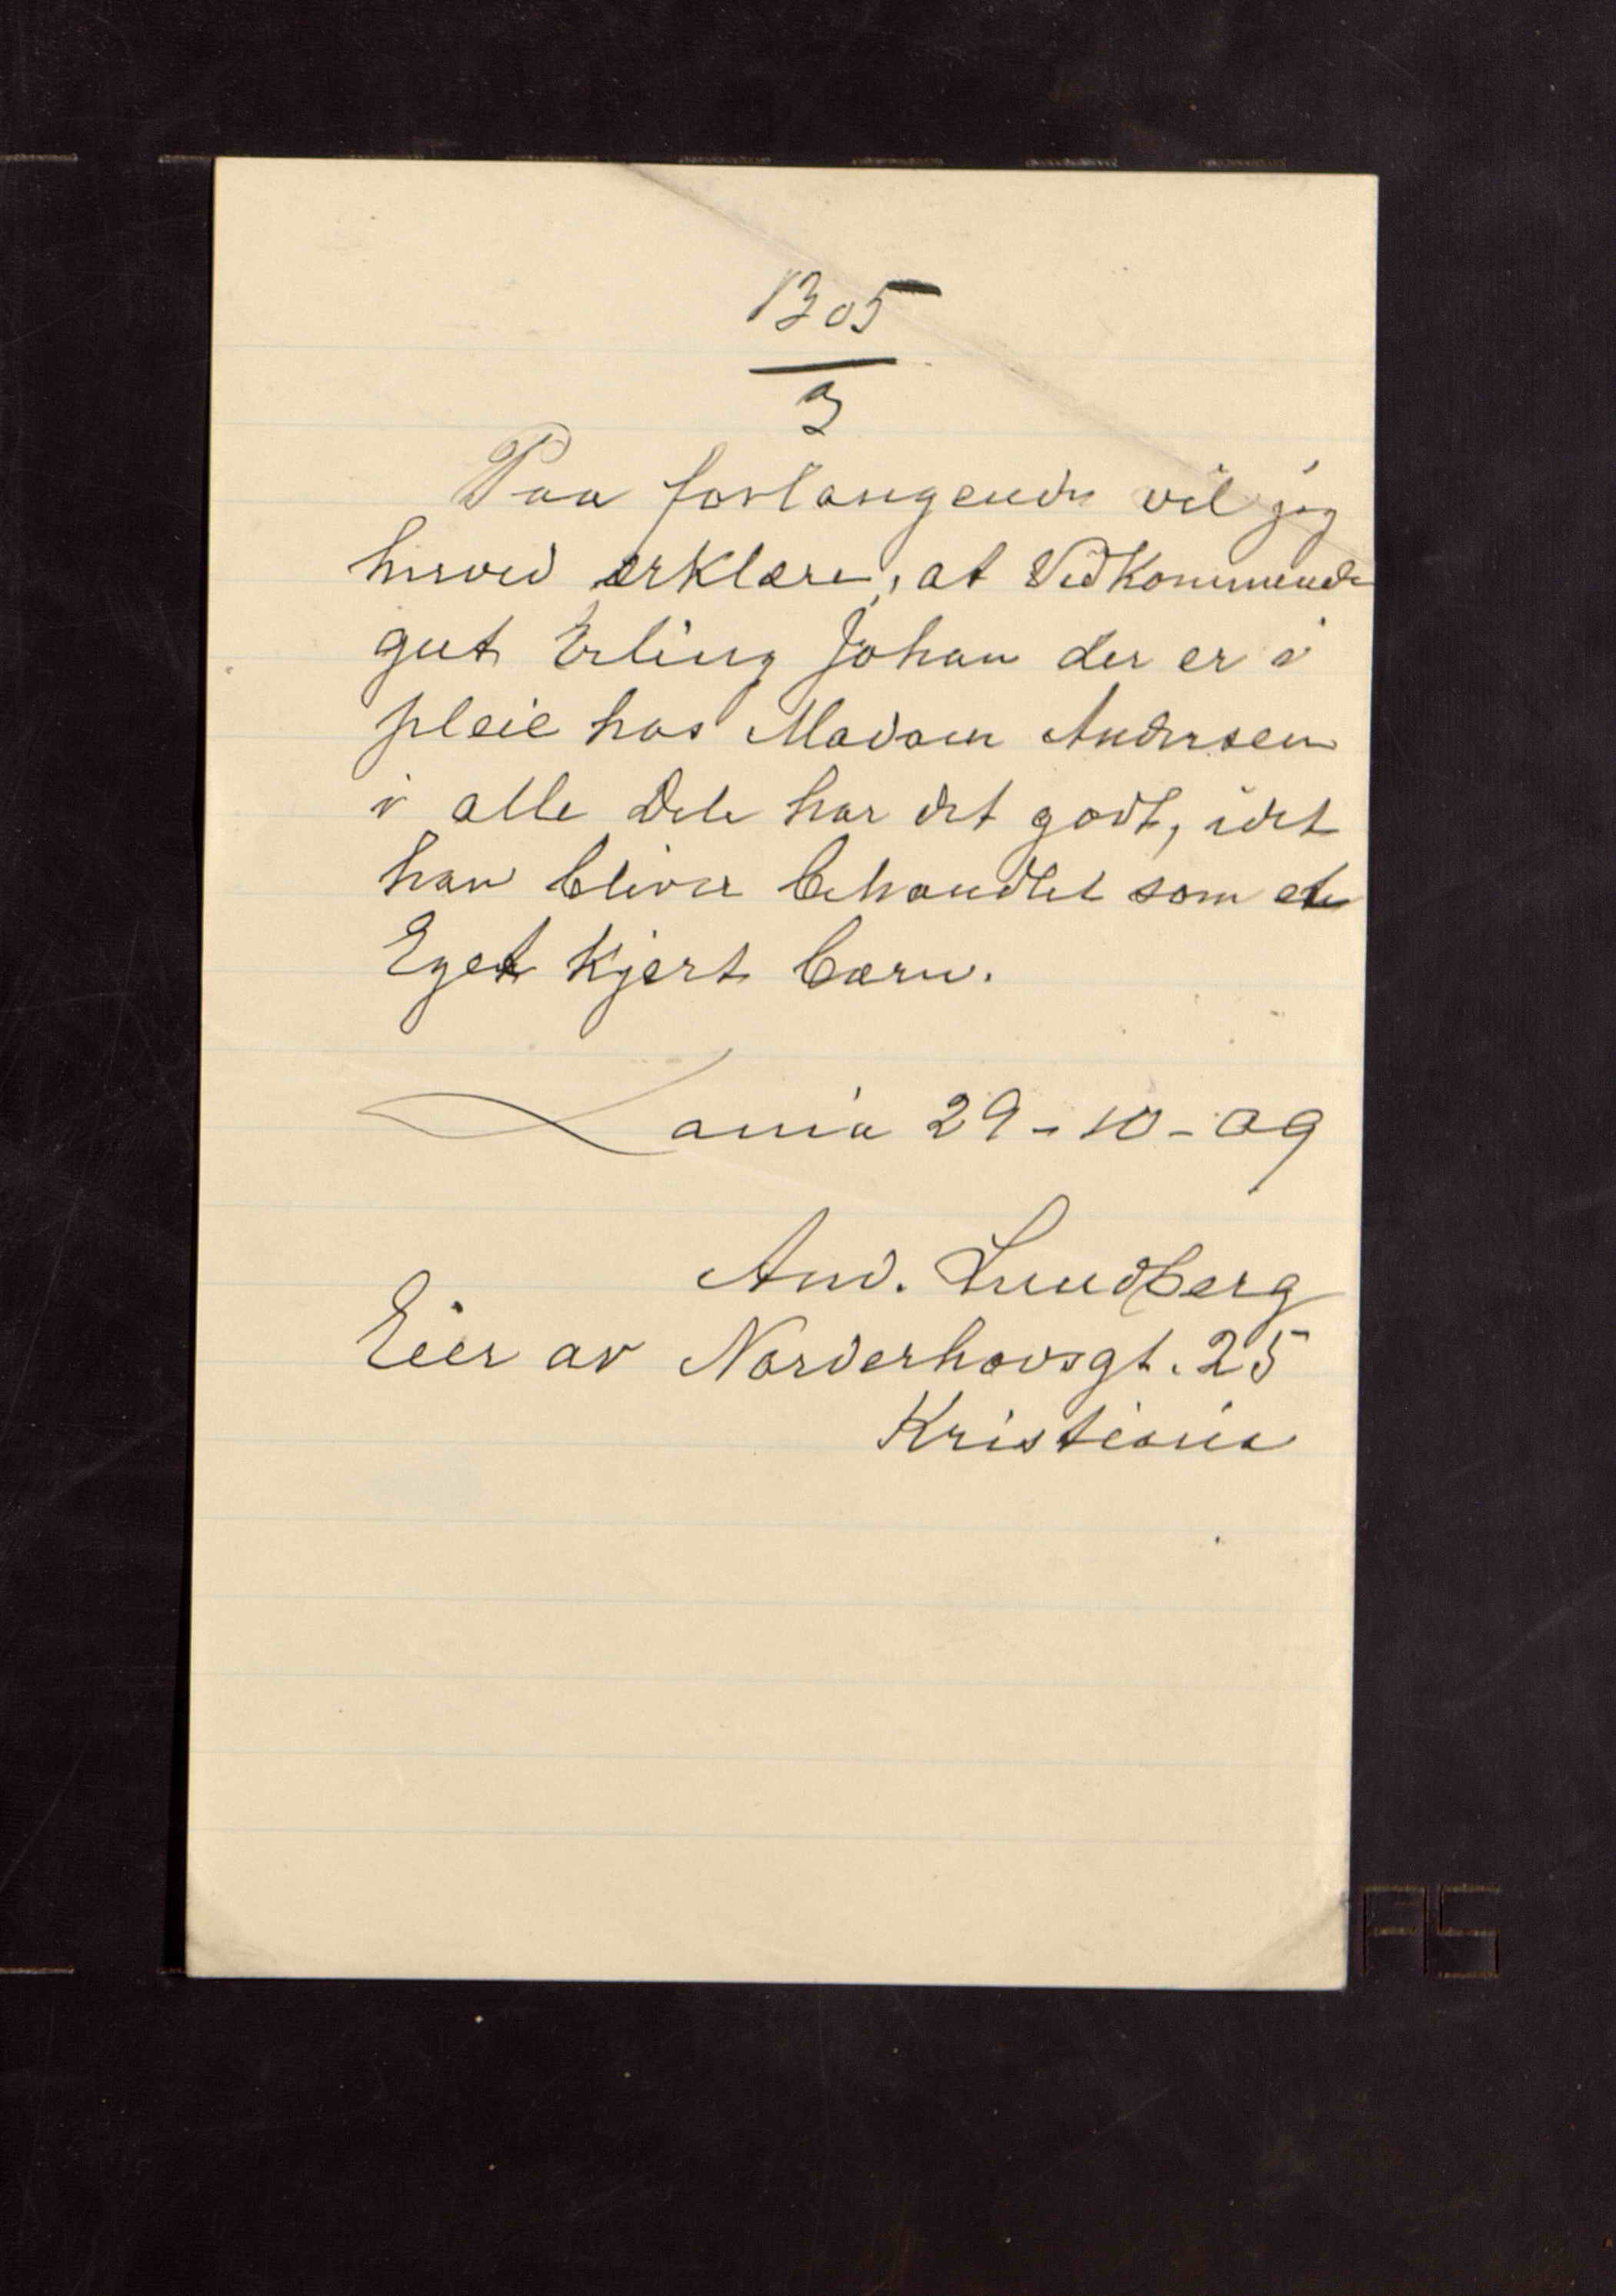 1305
3
Paa forlangende vil jeg
herved ærklære, at Vedkommende
gut Erling Johan der er i
pleie hos Madam Andersen
i alle Dele har det godt, idet
han bliver behandlet som et
Eget kjert barn.
Xania 29-10-09
And. Lundberg
Eier av Norderhovsgt. 25
Kristiania